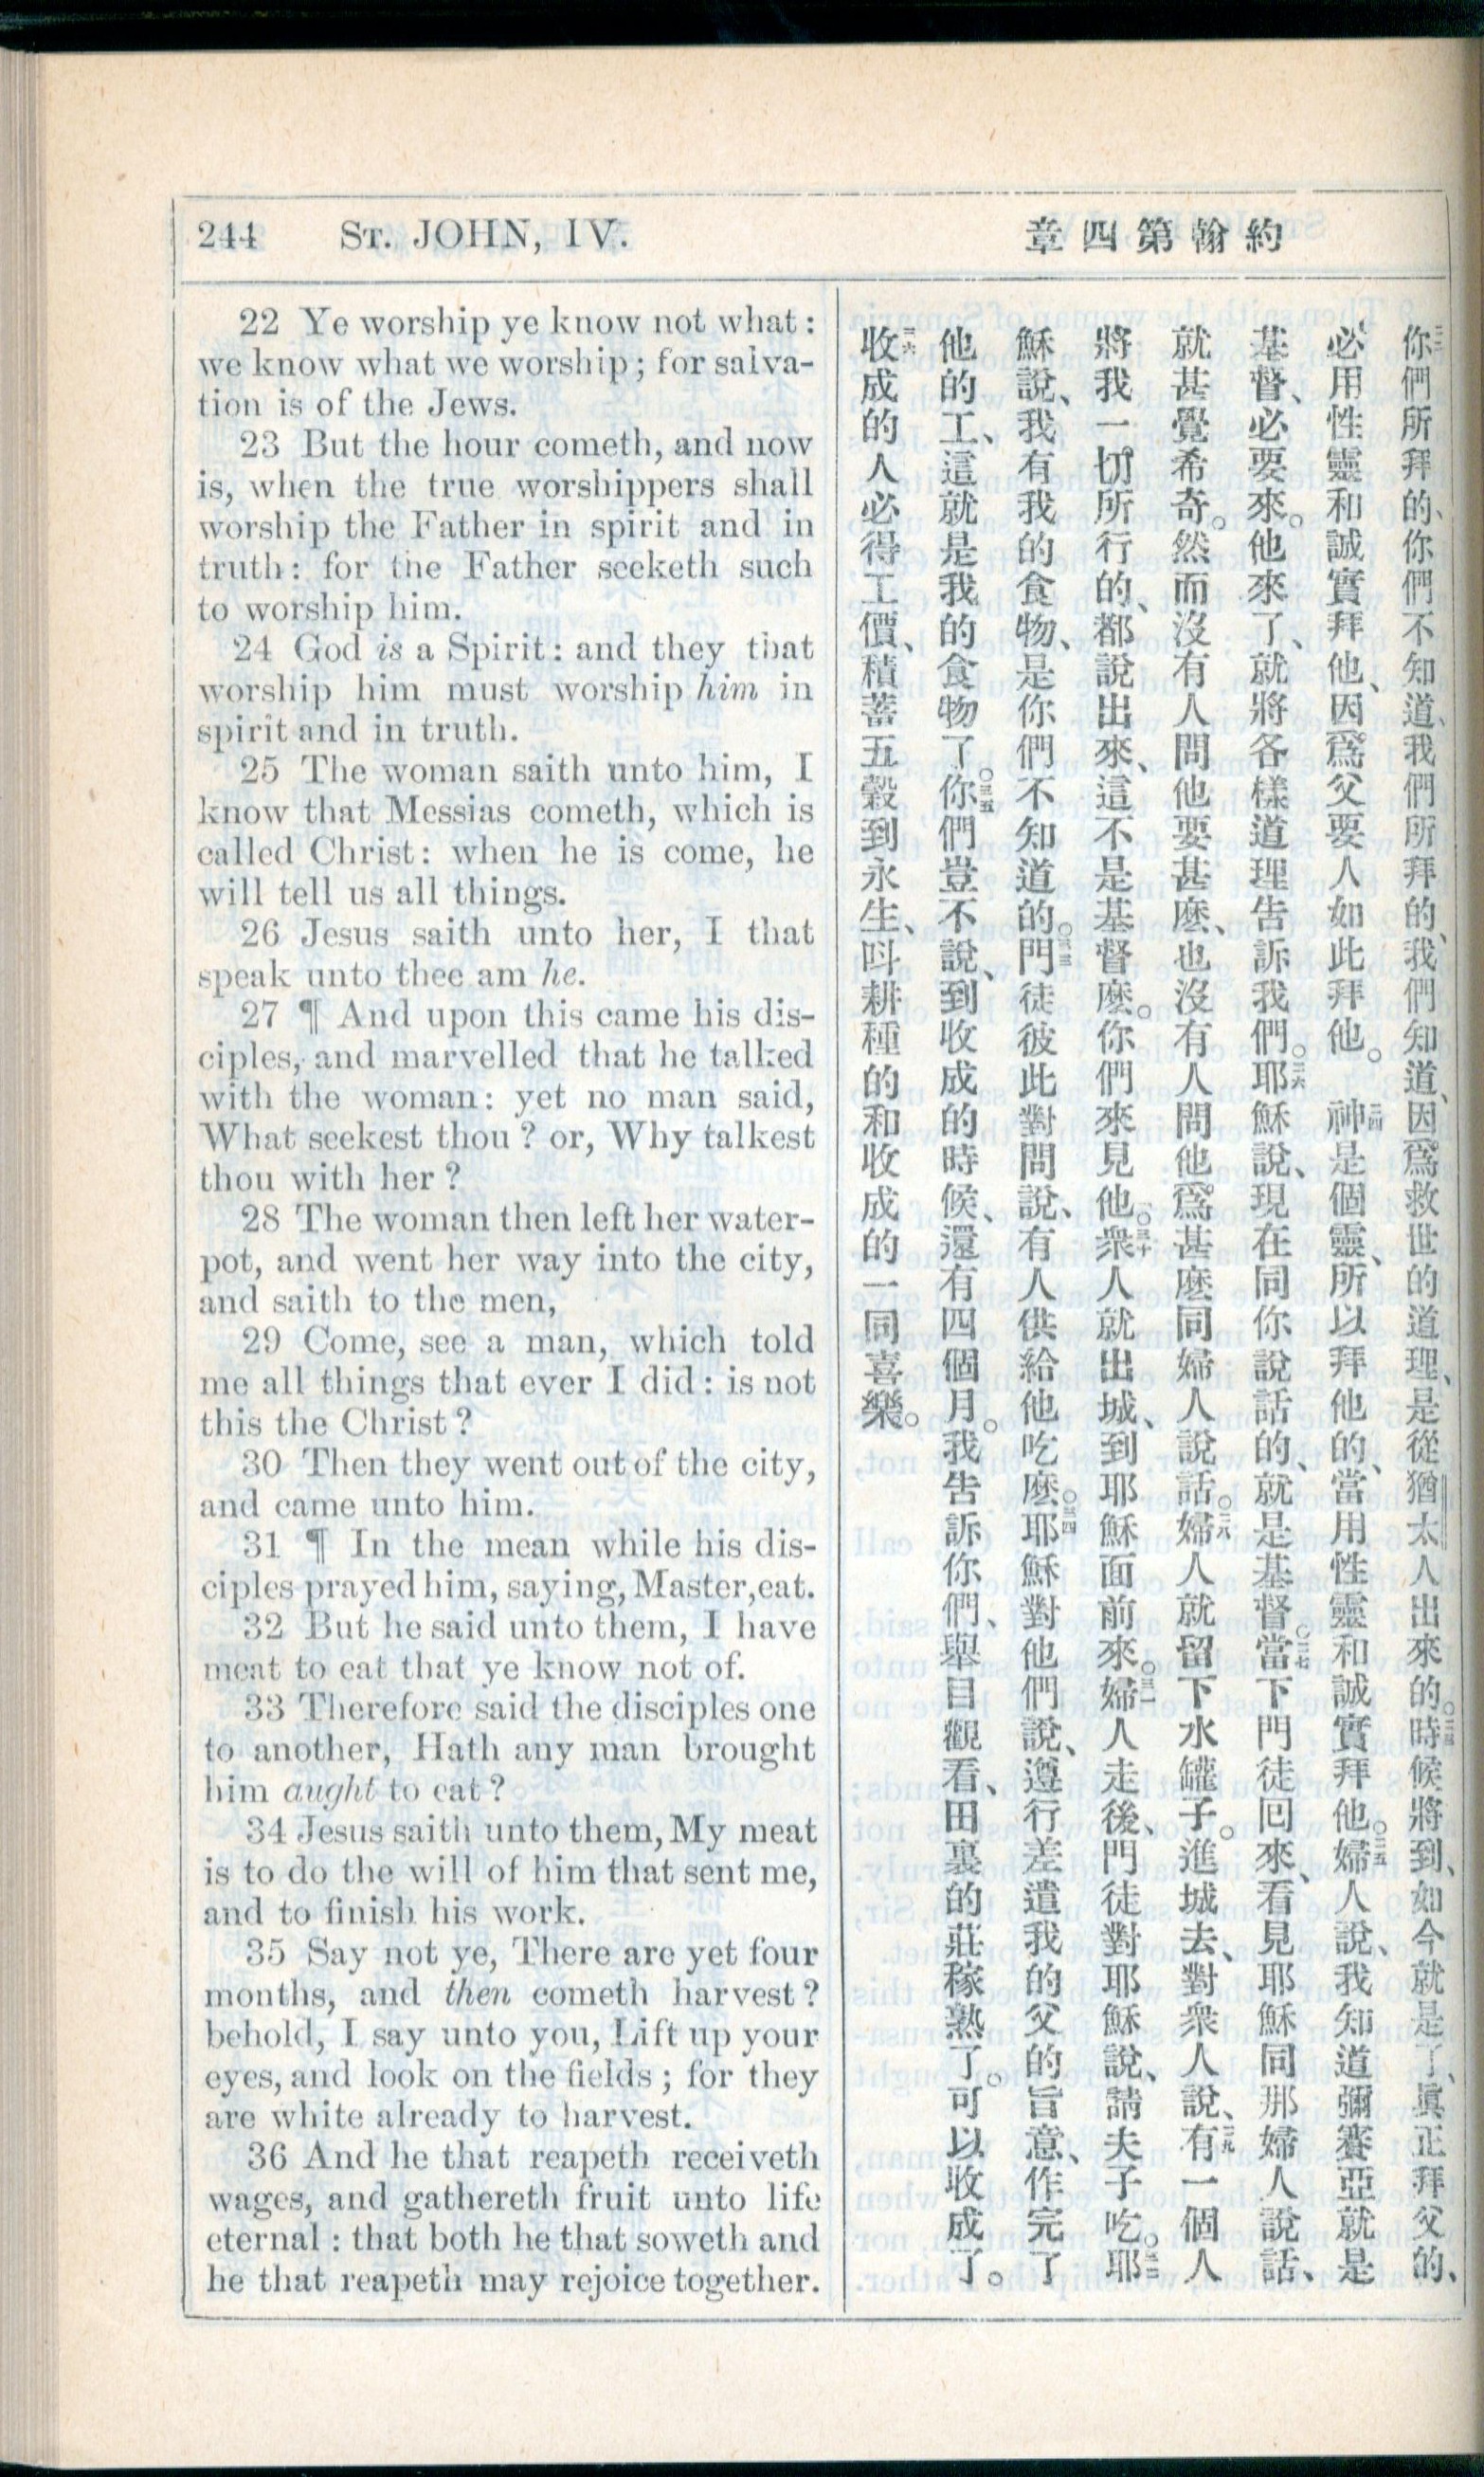 244 ST. JOHN, IV.
約翰第四章
22 Ye worship ye know not what:
we know what we worship; for salva-
tion is of the Jews.
23 But the hour cometh, and now
is, when the true worshippers shall
worship the Father in spirit and in
truth: for the Father seeketh such
to worship him.
24 God is a Spirit: and they that
worship him must worship him in
spirit and in truth.
25 The woman saith unto him, I
know that Messias cometh, which is
called Christ: when he is come, he
will tell us all things.
26 Jesus saith unto her, I that
speak unto thee am he.
27 ¶ And upon this came his dis-
ciples, and marvelled that he talked
with the woman: yet no man said,
What seekest thou? or, Why talkest
thou with her?
28 The woman then left her water-
pot, and went her way into the city,
and saith to the men,
29 Come, see a man, which told
me all things that ever I did: is not
this the Christ?
30 Then they went out of the city,
and came unto him.
31 ¶ In the mean while his dis-
ciples prayed him, saying, Master, eat.
32 But he said unto them, I have
meat to eat that ye know not of.
33 Therefore said the disciples one
to another, Hath any man brought
him aught to eat?
34 Jesus saith unto them, My meat
is to do the will of him that sent me,
and to finish his work.
35 Say not ye, There are yet four
months, and then cometh harvest?
behold, I say unto you, Lift up your
eyes, and look on the fields; for they
are white already to harvest.
36 And he that reapeth receiveth
wages, and gathereth fruit unto life
eternal: that both he that soweth and
he that reapeth may rejoice together.
二二你們所拜的、你們不知道、我們所拜的、我們知道、因爲救世的道理、是從猶太人出來的。二三時候將到、如今就是了、眞正拜父的、
必用性靈和誠實拜他、因爲父要人如此拜他。二四神是個靈、所以拜他的、當用性靈和誠實拜他。二五婦人說、我知道彌賽亞就是
基督、必要來。他來了、就將各樣道理告訴我們。二六耶穌說、現在同你說話的、就是基督。二七當下門徒回來、看見耶穌同那婦人說話、
就甚覺希奇。然而沒有人問他要甚麽、也沒有人問他爲甚麽同婦人說話。二八婦人就留下水罐子。進城去、對衆人說、二九有一個人
將我一切所行的、都說出來、這不是基督麽。你們來見他。三十衆人就出城、到耶穌面前來。三一婦人走後、門徒對耶穌說、請夫子吃。三二耶
穌說、我有我的食物、是你們不知道的。三三門徒彼此對問說、有人供給他吃麽。三四耶穌對他們說、遵行差遣我的父的旨意、作完了
他的工、這就是我的食物了。三五你們豈不說、到收成的時候、還有四個月。我告訴你們、舉目觀看、田裏的莊稼熟了。可以收成了。
三六收成的人必得工價、積蓄五穀到永生、呌耕種的和收成的一同喜樂。